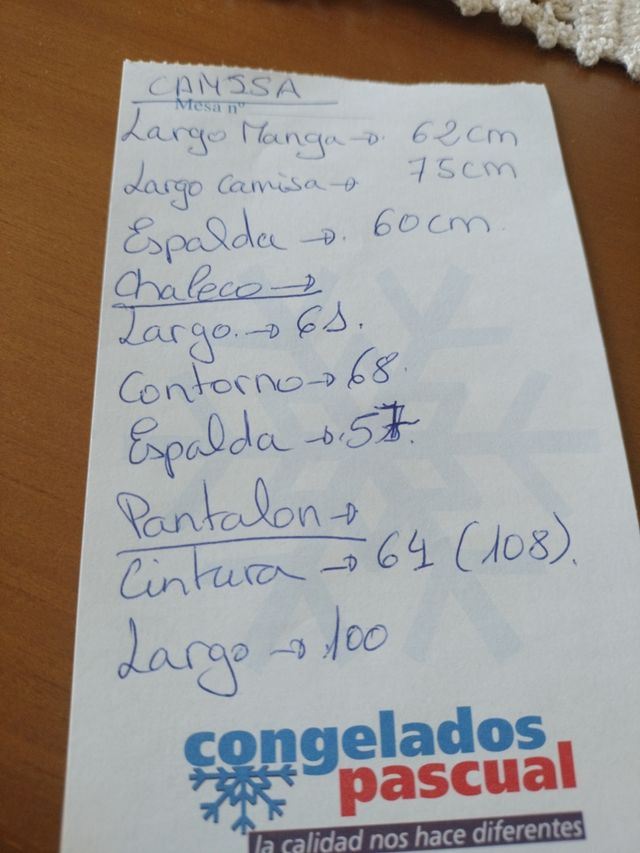 CAMISA
Mesa nº
Largo Manga → 62cm
Largo Camisa → 75cm
Espalda → 60cm.
Chaleco →
Largo. → 61.
Contorno → 68.
Espalda → 57.
Pantalon →
Cintura → 64 (108).
Largo → 100
congelados
pascual
la calidad nos hace diferentes